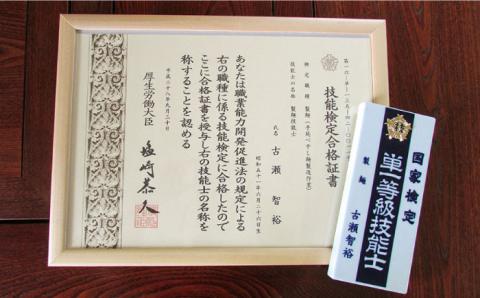 技能検定合格証書
検定職種 製麺(手延べそうめん類製造作業)
技能士の名称 製麺技能士
氏名 古瀬 智裕
昭和五十一年六月二十六日生
あなたは職業能力開発促進法の規定による
右の職種に係る技能検定に合格したので
ここに合格証書を授与し右の技能士の名称を
称することを認める
平成二十八年九月二十日
厚生労働大臣
塩崎恭久
国家検定
単一等級技能士
製麺
古瀬智裕